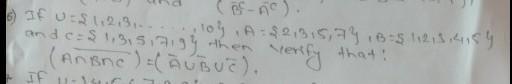 and (B̄-Ā^c).
6) If U={1,2,3,.......,10}, A={2,3,5,7}, B={1,2,3,4,5}
and C={1,3,5,7,9} then verify that:
(A∩B∩C)‾=(Ā∪B̄∪C̄).
If